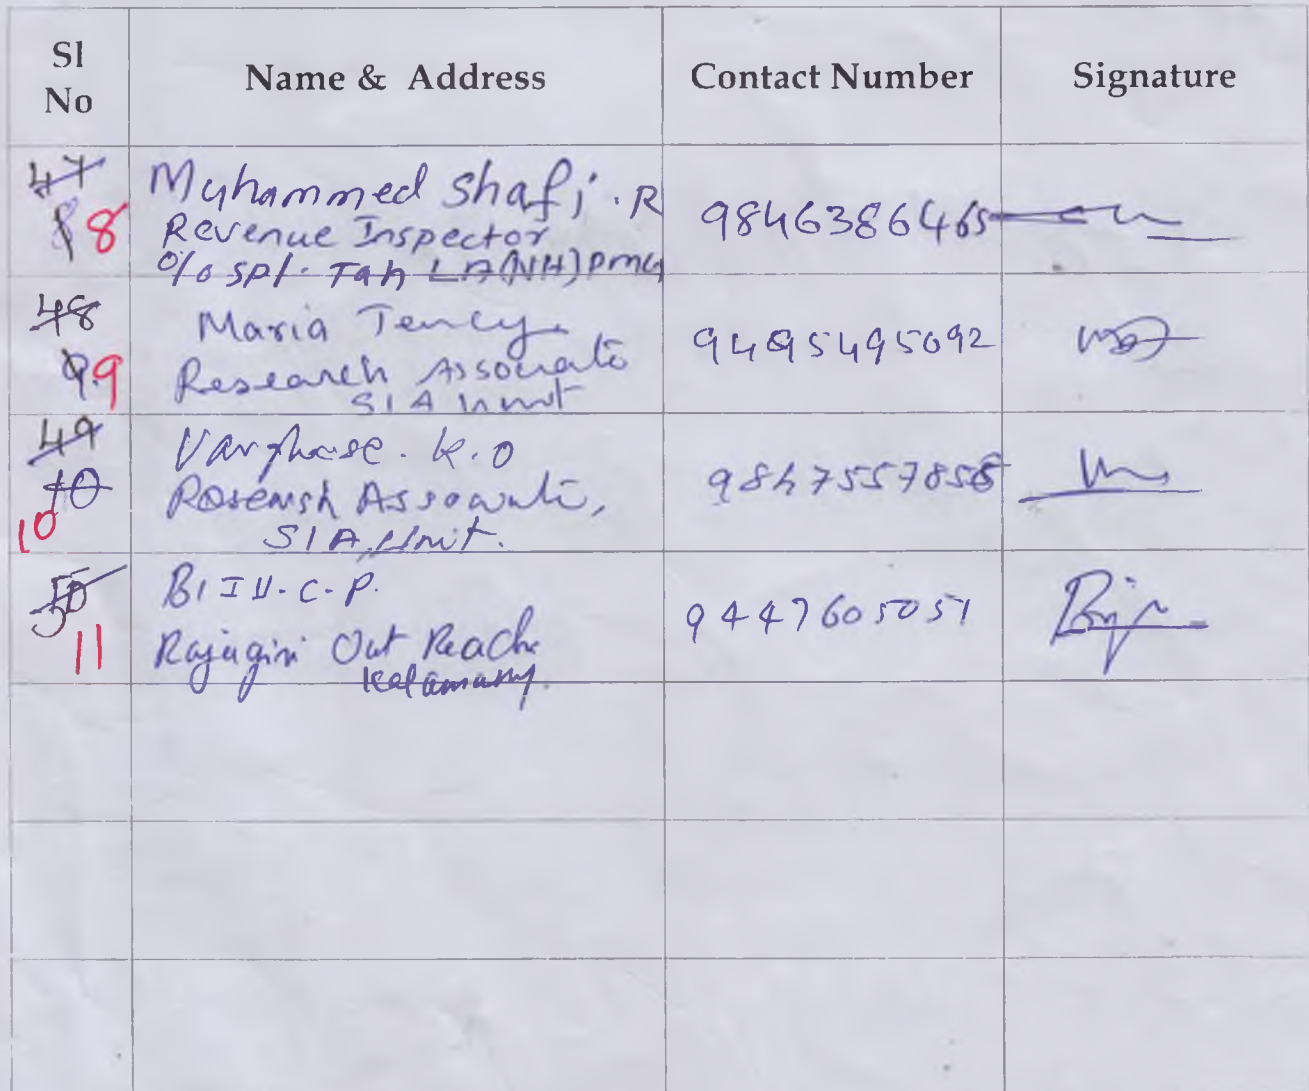 Sl No
Name & Address
Contact Number
Signature
47
8 8
Muhammed Shafi . R
Revenue Inspector
O/o Spl. Tah LA(NH) PMG
9846386465
48
9. 9
Maria Tency
Research Associate
SIA Unit
9495495092
49
10
10
Varghese. K.O
Research Associate,
SIA, Unit.
9847557858
50
11
BIJU. C. P.
Rajagiri Out Reach
Kalamassery.
9447605051
Biju